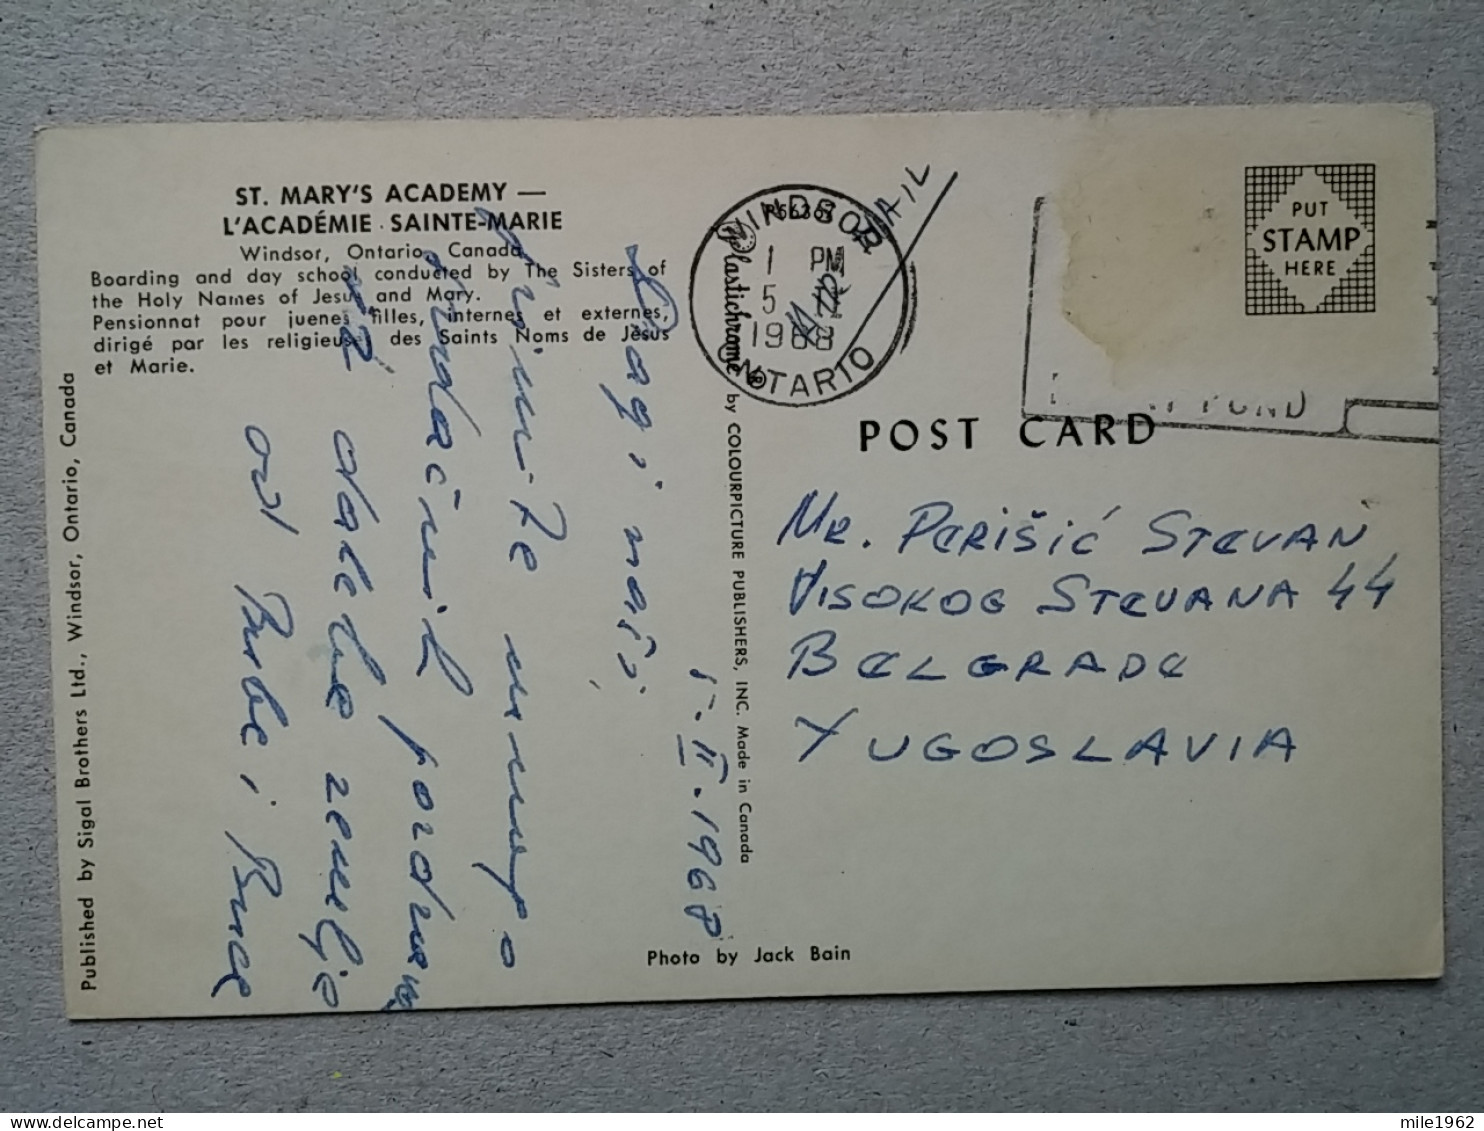 ST. MARY'S ACADEMY —
L'ACADÉMIE SAINTE-MARIE
Windsor, Ontario, Canada
Boarding and day school conducted by The Sisters of
the Holy Names of Jesus and Mary.
Pensionnat pour juenes filles, internes et externes,
dirigé par les religieuses des Saints Noms de Jésus
et Marie.
Published by Sigal Brothers Ltd., Windsor, Ontario, Canada
1-II-1968
Dragi naši,
Primite
srdačnih pozdrava
iz daleke zemlje
od Borbe i Bruce
Plastichrome ® by COLOURPICTURE PUBLISHERS, INC. Made in Canada
P56367
WINDSOR
1 PM
5
1968
ONTARIO
AIR MAIL
FUND
PUT
STAMP
HERE
POST CARD
MR. PERIŠIĆ STEVAN
VISOKOG STEVANA 44
BELGRADE
YUGOSLAVIA
Photo by Jack Bain
mile1962